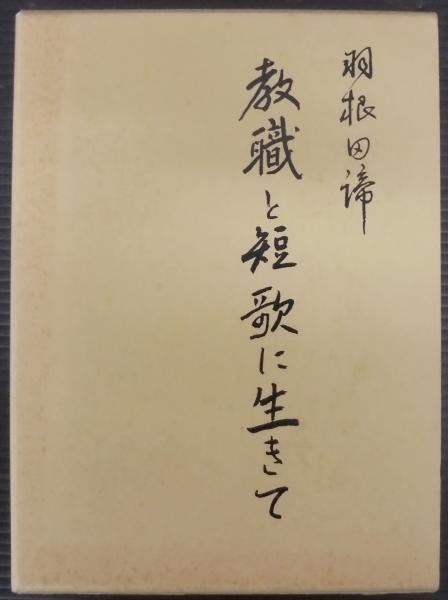 羽根田諦
教職と短歌に生きて